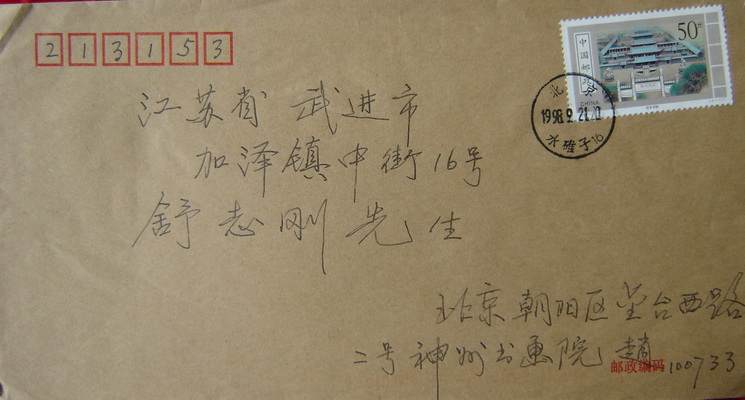 213153
50分
中国邮政
CHINA
北京
1998.9.21.
水碓子16
江苏省 武进市
加泽镇中街16号
舒志刚先生
北京朝阳区垡台西路
二号神州书画院
邮政编码 100733